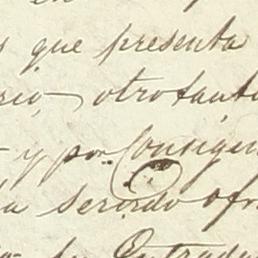 en
s que presenta
rio, otro tanto
y por consiguien
ia servido ofr
Entrada